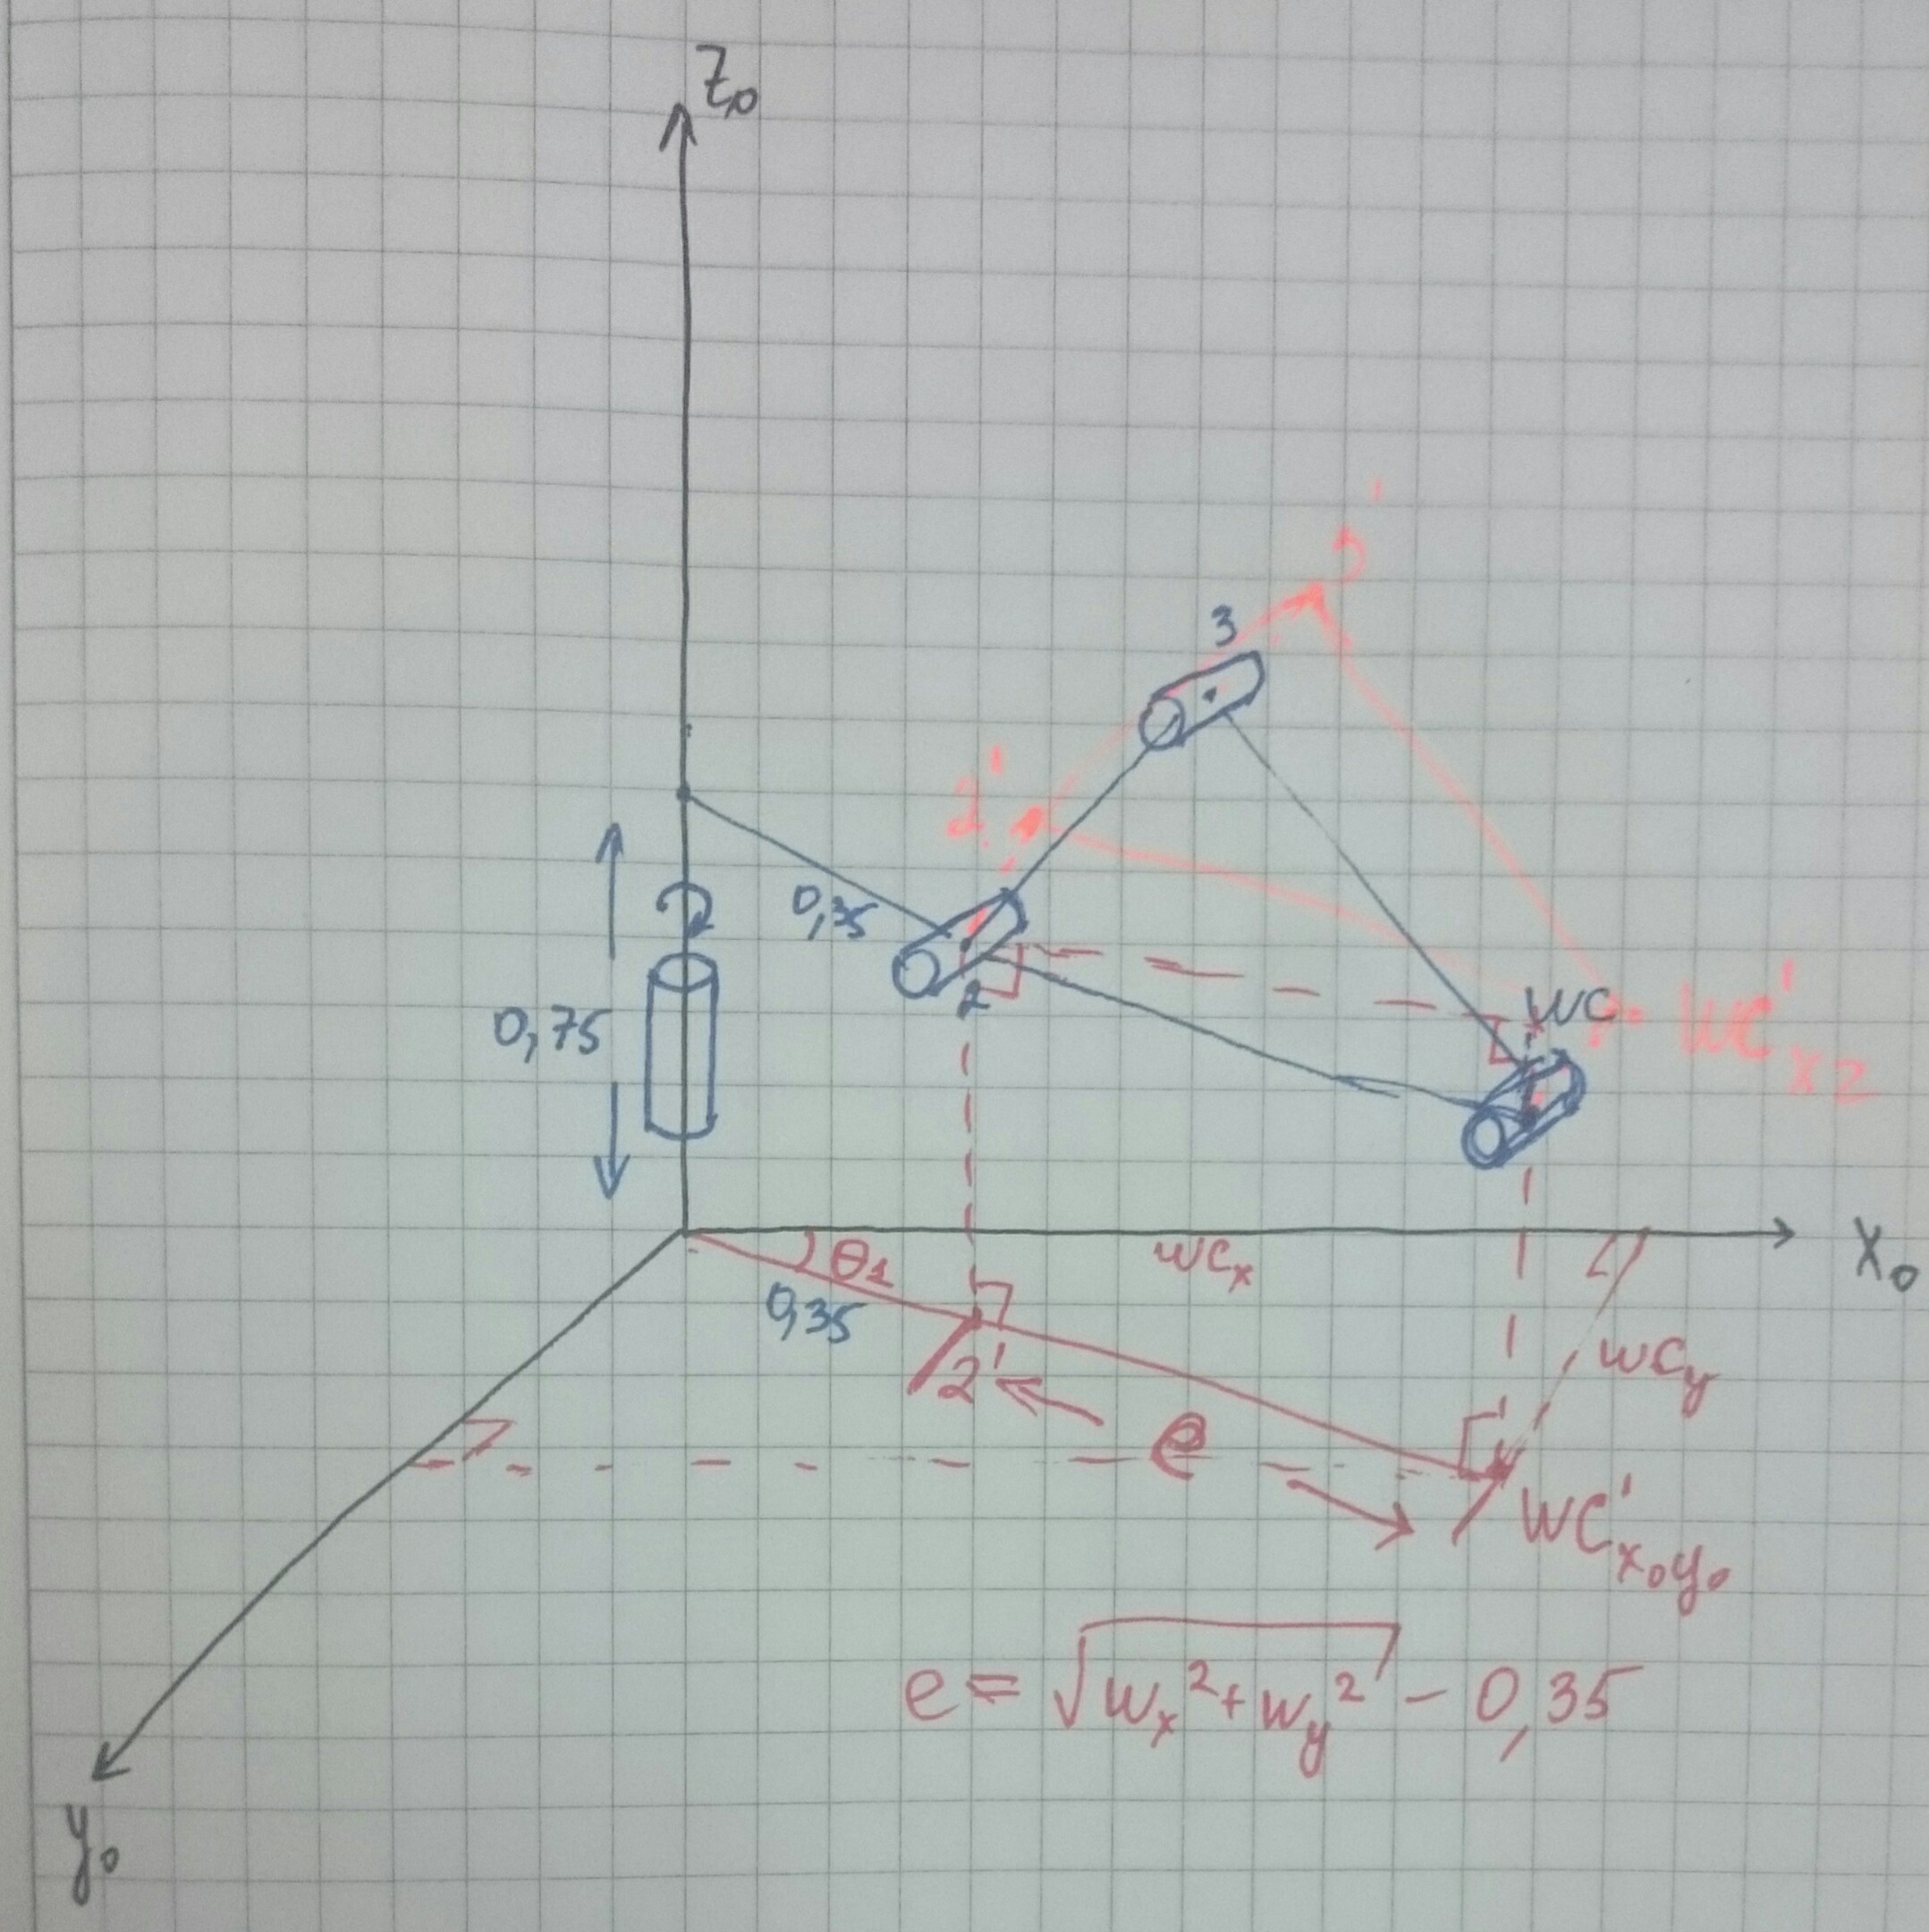 Z₀
3'
3
2'
0,35
2
0,75
WC
WC'xz
X₀
θ₁
WCx
0,35
WCy
2'
e
WC'x₀y₀
e = √(wx² + wy²) - 0,35
y₀